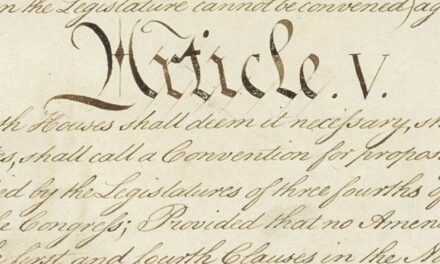 n the Legislature cannot be convened) ag
Article. V.
th Houses shall deem it necessary, sh
es, shall call a Convention for propos
ed by the Legislatures of three fourths of
e Congress; Provided that no Amen
first and fourth Clauses in the N